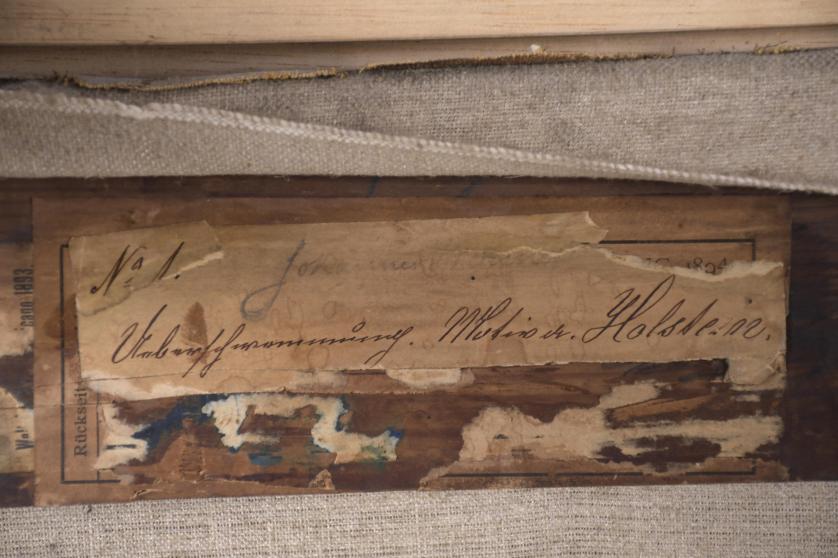 No 1.
Johannes
1894
Ueberschwemmung. Motiv a. Holstein.
Rückseit
cago 1893.